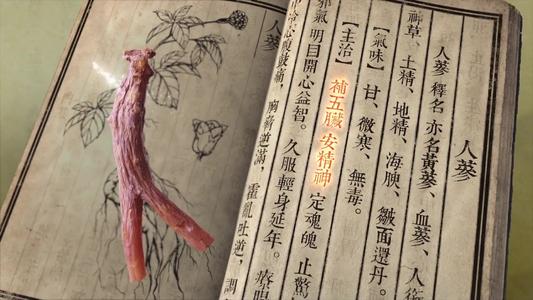 人蔘
人蔘 釋名 亦名黃蔘、血蔘、人
神草、土精、地精、海腴、皺面還丹。
【氣味】 甘、微寒、無毒。
【主治】 補五臟 安精神 定魂魄 止驚
邪氣 明目開心益智。 久服輕身延年。 療腸
冷心腹鼓痛、胸脅逆滿、霍亂吐逆、調
人蔘